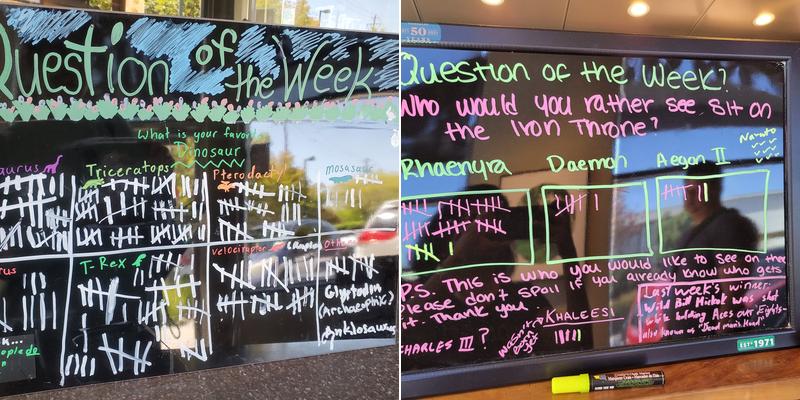 Question of the Week
What is your favorite
Dinosaur
aurus
Triceratops
Pterodactyl
mosasaur
T-Rex
Velociraptor
Other
Glyptodon
(Archaeophic?)
Anklosaurus
50
Question of the Week?
Who would you rather see sit on
the Iron Throne?
Naruto
Rhaenyra
Daemon
Aegon II
P.S. This is who you would like to see on the
Please don't spoil if you already know who gets
it. Thank you
KHALEESI
CHARLES III?
Wasn't
born
yet
Last week's winner:
Wild Bill Hickok was shot
holding Aces over Eights-
also known as "Dead man's Hand"
EST 1971